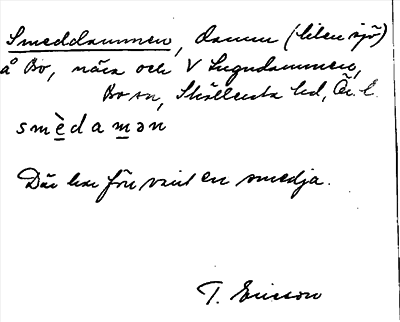 Smeddammen, damm (liten sjö)
å Bo, nära och V Lugndammen,
Bo sn, Skyllersta hd, Ör. l.
smèdamən
Där har förr varit en smedja.
T. Ericson